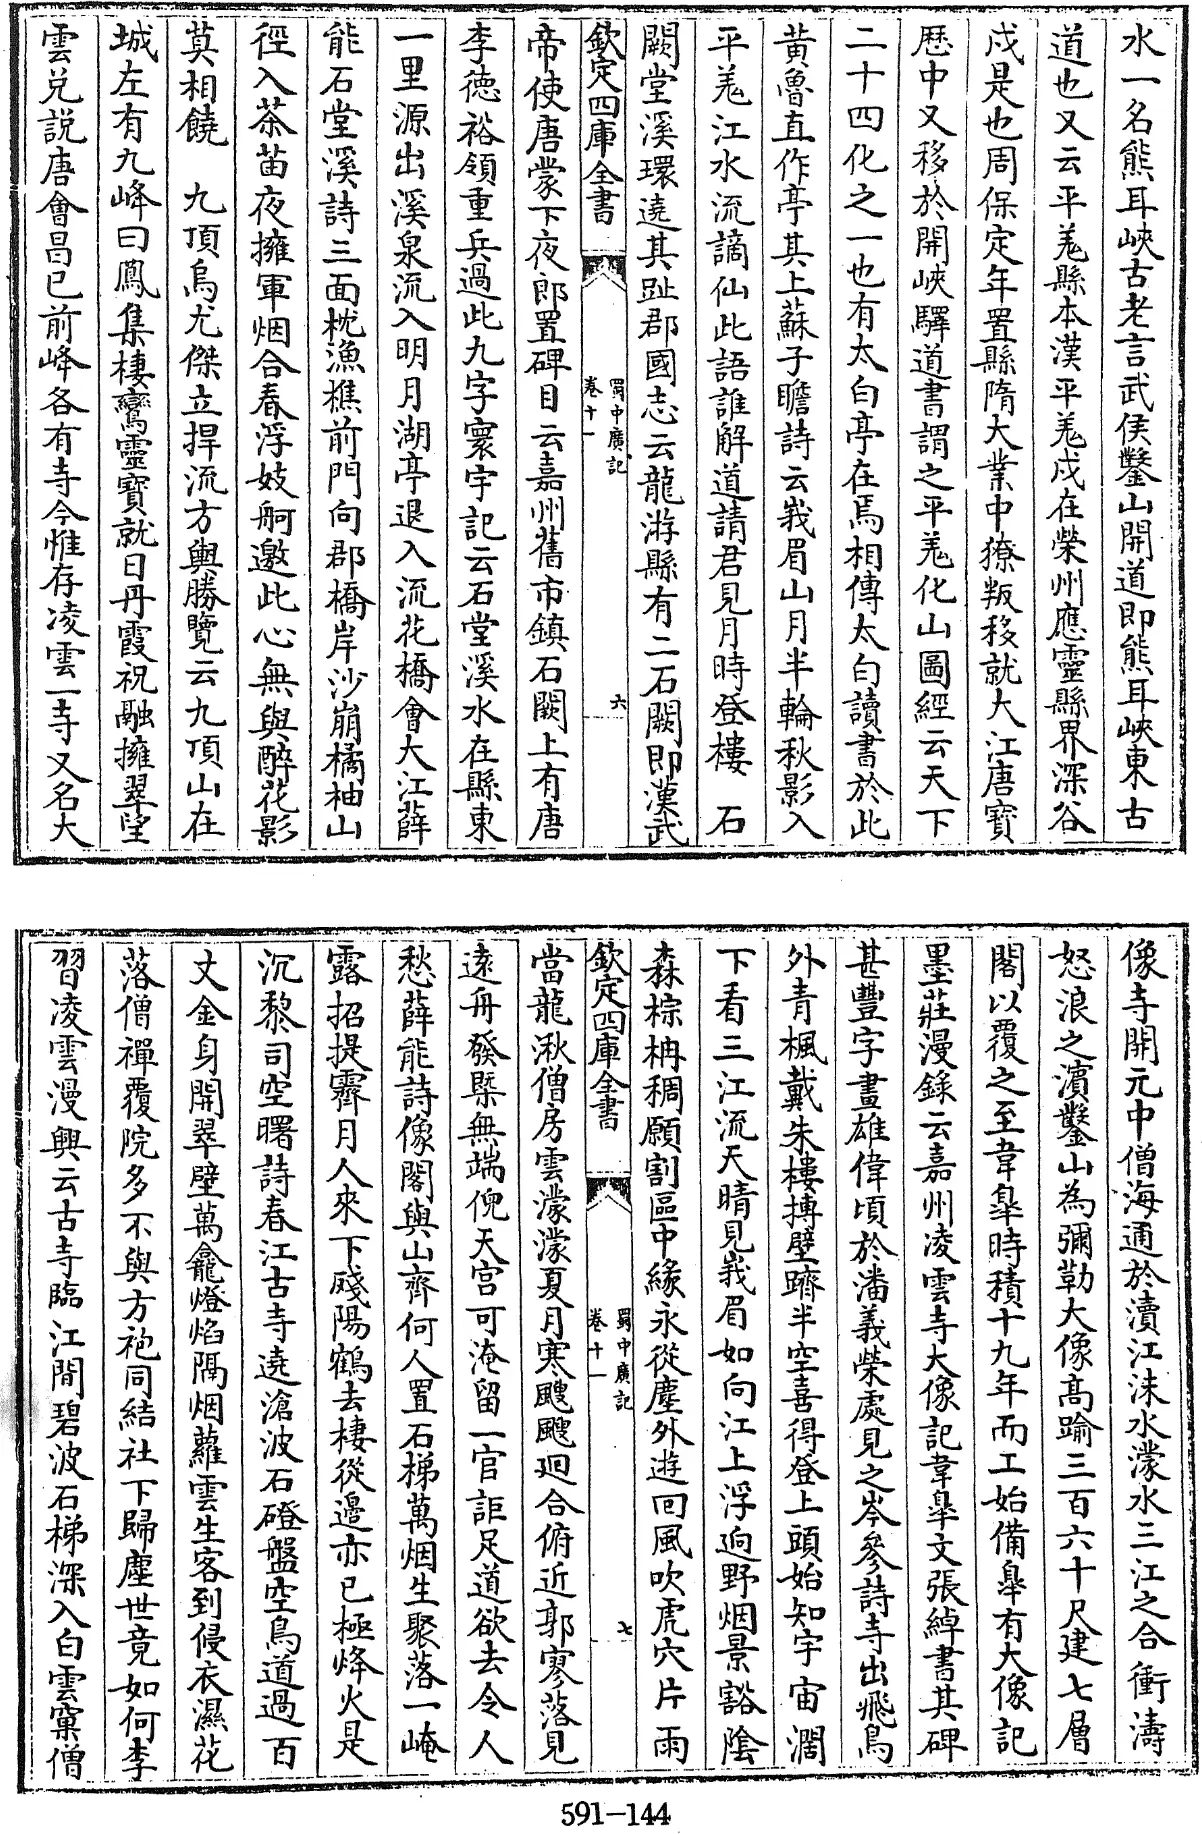 水一名熊耳峽古老言武侯鑿山開道即熊耳峽東古
道也又云平羌縣本漢平羌戍在榮州應靈縣界深谷
戍是也周保定年置縣隋大業中獠叛移就大江唐寳
歴中又移於開峽驛道書謂之平羌化山圖經云天下
二十四化之一也有太白亭在焉相傳太白讀書於此
黄魯直作亭其上蘇子瞻詩云峩眉山月半輪秋影入
平羌江水流謫仙此語誰解道請君見月時登樓　石
闕堂溪環遶其趾郡國志云龍游縣有二石闕即漢武
欽定四庫全書
蜀中廣記
卷十一
六
帝使唐蒙下夜郎置碑目云嘉州舊市鎮石闕上有唐
李德裕領重兵過此九字寰宇記云石堂溪水在縣東
一里源出溪泉流入明月湖亭退入流花橋會大江薛
能石堂溪詩三面枕漁樵前門向郡橋岸沙崩橘柚山
徑入茶苗夜擁軍烟合春浮妓舸邀此心無與醉花影
莫相饒　九頂烏尤傑立捍流方輿勝覽云九頂山在
城左有九峰曰鳳集棲鸞靈寳就日丹霞祝融擁翠望
雲兑説唐會昌已前峰各有寺今惟存凌雲一寺又名大
像寺開元中僧海通於瀆江沫水濛水三江之合衝濤
怒浪之濱鑿山為彌勒大像髙踰三百六十尺建七層
閣以覆之至韋臯時積十九年而工始備臯有大像記
墨莊漫錄云嘉州凌雲寺大像記韋臯文張綽書其碑
甚豐字畫雄偉頃於潘義榮處見之岑參詩寺出飛鳥
外青楓戴朱樓摶壁躋半空喜得登上頭始知宇宙濶
下看三江流天晴見峩眉如向江上浮逈野烟景豁隂
森棕柟稠願割區中緣永從塵外遊回風吹虎穴片雨
欽定四庫全書
蜀中廣記
卷十一
七
當龍湫僧房雲濛濛夏月寒颼颼廻合俯近郭寥落見
遠舟發㮣無端倪天宫可淹留一官詎足道欲去令人
愁薛能詩像閣與山齊何人置石梯萬烟生聚落一崦
露招提霽月人來下殘陽鶴去棲從邉亦已極烽火是
沉黎司空曙詩春江古寺遶滄波石磴盤空鳥道過百
丈金身開翠壁萬龕燈焰隔烟蘿雲生客到侵衣濕花
落僧禪覆院多不與方袍同結社下歸塵世竟如何李
習凌雲漫興云古寺臨江間碧波石梯深入白雲窠僧
591-144